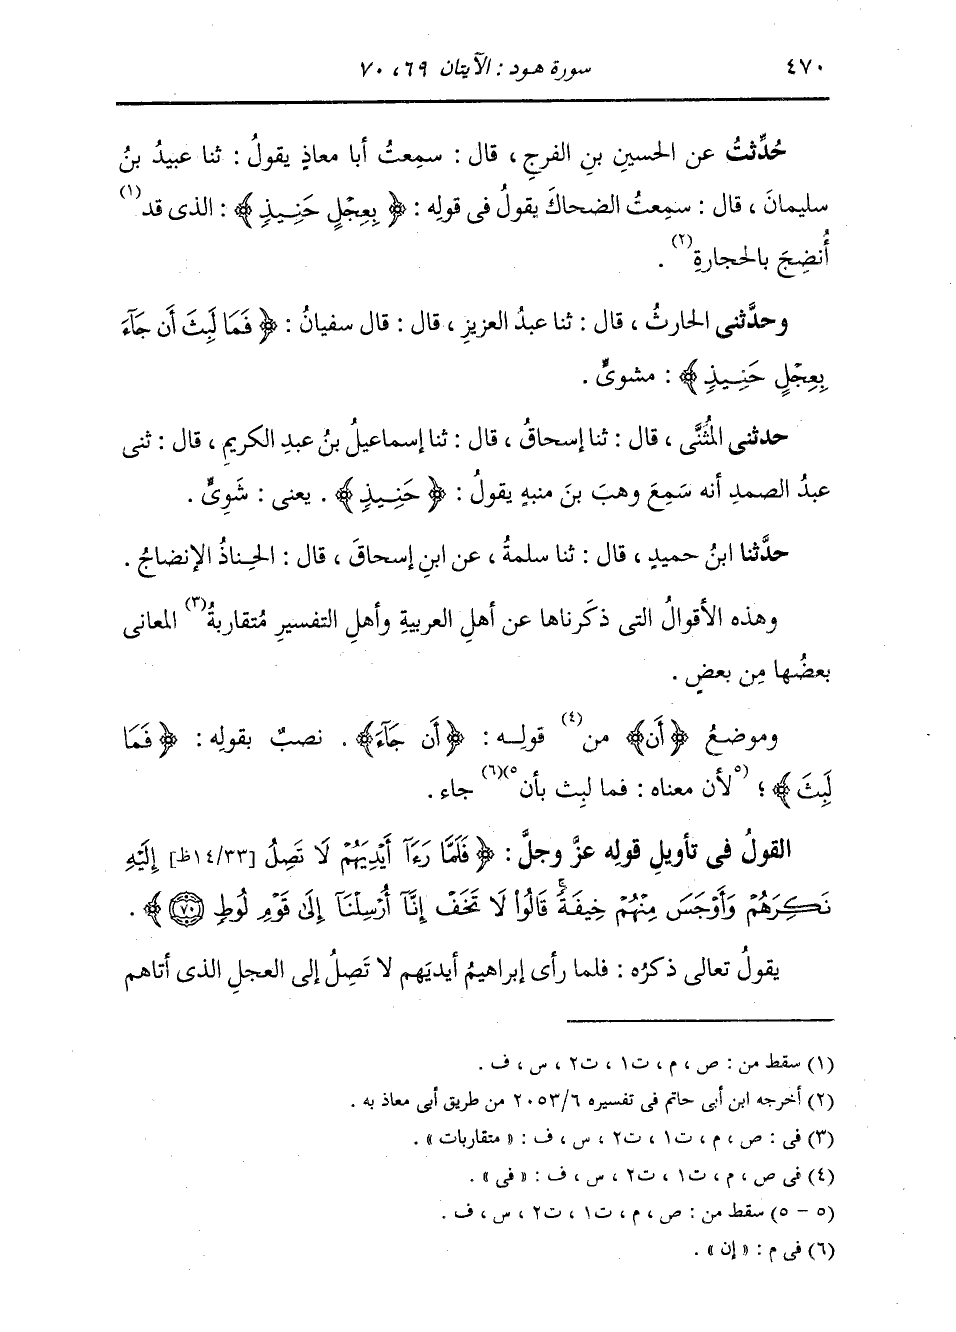 ٤٧٠ سورة هود : الآيتان ٦٩، ٧٠
حُدِّثتُ عن الحسينِ بنِ الفرجِ ، قال : سمِعتُ أبا معاذٍ يقولُ : ثنا عبيدُ بنُ
سليمانَ ، قال : سمِعتُ الضحاكَ يقولُ فى قولِه : ﴿ بِعِجْلٍ حَنِيذٍ ﴾ : الذى قد(١)
أُنضِجَ بالحجارةِ(٢) .
وحدَّثنى الحارثُ ، قال : ثنا عبدُ العزيزِ ، قال : قال سفيانُ : ﴿ فَمَا لَبِثَ أَن جَآءَ
بِعِجْلٍ حَنِيذٍ ﴾ : مشوىٌّ .
حدثنى المُثَنَّى ، قال : ثنا إسحاقُ ، قال : ثنا إسماعيلُ بنُ عبدِ الكريمِ ، قال : ثنى
عبدُ الصمدِ أنه سَمِعَ وهبَ بنَ منبهٍ يقولُ : ﴿ حَنِيذٍ ﴾ . يعنى : شَوِىٌّ .
حدَّثنا ابنُ حميدٍ ، قال : ثنا سلمةُ ، عن ابنِ إسحاقَ ، قال : الحِناذُ الإنضاجُ .
وهذه الأقوالُ التى ذكَرناها عن أهلِ العربيةِ وأهلِ التفسيرِ مُتقاربةُ(٣) المعانى
بعضُها مِن بعضٍ .
وموضعُ ﴿أَن﴾ من(٤) قولِه : ﴿أَن جَآءَ﴾ . نصبٌ بقولِه : ﴿ فَمَا
لَبِثَ ﴾ ؛ (٥لأن معناه : فما لبِث بأن٥)(٦) جاء .
القولُ فى تأويلِ قولِه عزَّ وجلَّ : ﴿ فَلَمَّا رَءَآ أَيْدِيَهُمْ لَا تَصِلُ [١٤/٣٣ظ] إِلَيْهِ
نَكِرَهُمْ وَأَوْجَسَ مِنْهُمْ خِيفَةًۚ قَالُوا۟ لَا تَخَفْ إِنَّآ أُرْسِلْنَآ إِلَىٰ قَوْمِ لُوطٍ ۝٧٠ ﴾ .
يقولُ تعالى ذكرُه : فلما رأى إبراهيمُ أيديَهم لا تَصِلُ إلى العجلِ الذى أتاهم
(١) سقط من : ص ، م ، ت١ ، ت٢ ، س ، ف .
(٢) أخرجه ابن أبى حاتم فى تفسيره ٢٠٥٣/٦ من طريق أبى معاذ به .
(٣) فى : ص ، م ، ت١ ، ت٢ ، س ، ف : « متقاربات » .
(٤) فى ص ، م ، ت١ ، ت٢ ، س ، ف : « فى » .
(٥ - ٥) سقط من : ص ، م ، ت١ ، ت٢ ، س ، ف .
(٦) فى م : « إن » .